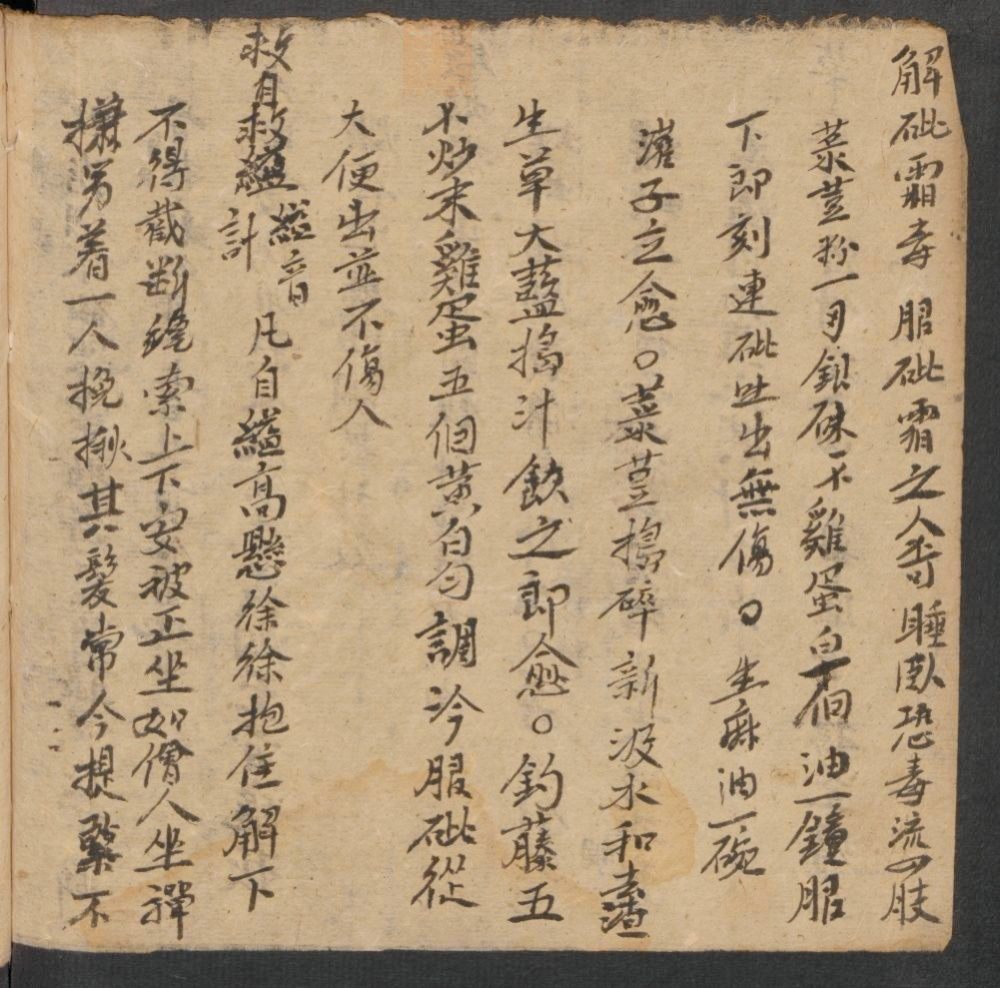 解砒霜毒 服砒霜之人者睡臥恐毒流四肢
菉荳粉一勺銀硃一个雞蛋白十個油一鐘服
下即刻連砒吐出無傷○生麻油一碗
灌子立愈○菉荳搗碎新汲水和
生草大藍搗汁飲之即愈○釣藤五
个炒末雞蛋五個黄白勻調冷服砒從
大便出並不傷人
救自縊縊音計 凡自縊高懸徐徐抱住解下
不得截断繩索上下安被正坐如僧人坐禪
樣另着一人挽揪其髮常令提緊不